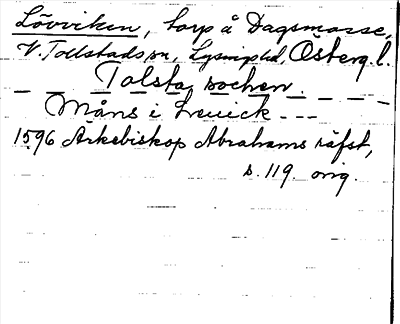 Lövviken, torp å Dagsmosse,
V. Tollstads sn, Lysings hd, Österg. l.
— — Tolsta sochen. — — —
Måns i Leuick - - -
1596 Ärkebiskop Abrahams räfst,
s. 119. orig.